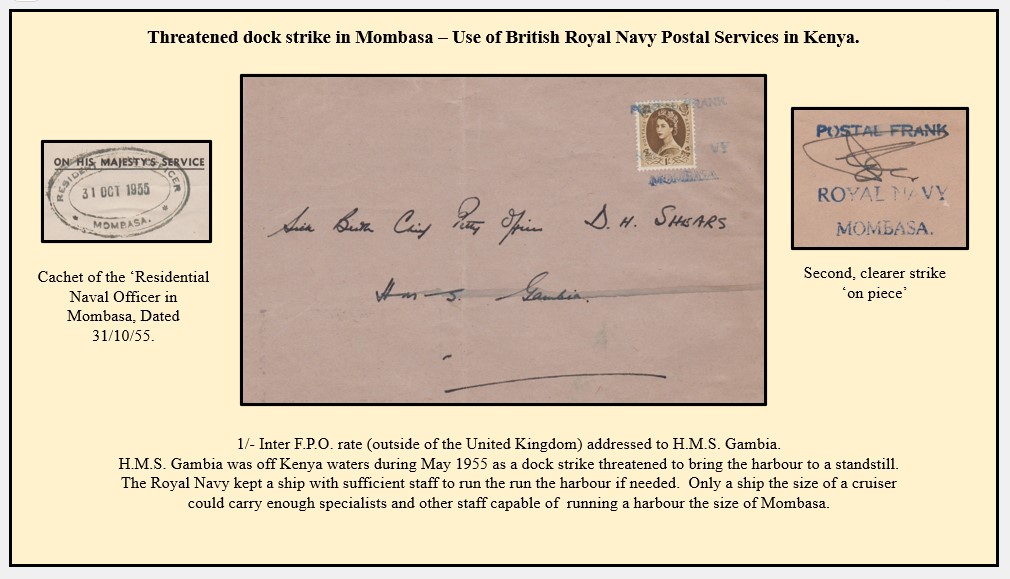 Threatened dock strike in Mombasa – Use of British Royal Navy Postal Services in Kenya.
ON HIS MAJESTY'S SERVICE
RESIDENT NAVAL OFFICER
31 OCT 1955
MOMBASA.
Cachet of the ‘Residential
Naval Officer in
Mombasa, Dated
31/10/55.
POSTAL FRANK
VY
MOMBASA.
Chief Petty Officer D. H. SHEARS
H.M.S. Gambia.
POSTAL FRANK
ROYAL NAVY
MOMBASA.
Second, clearer strike
‘on piece’
1/- Inter F.P.O. rate (outside of the United Kingdom) addressed to H.M.S. Gambia.
H.M.S. Gambia was off Kenya waters during May 1955 as a dock strike threatened to bring the harbour to a standstill.
The Royal Navy kept a ship with sufficient staff to run the run the harbour if needed. Only a ship the size of a cruiser
could carry enough specialists and other staff capable of running a harbour the size of Mombasa.